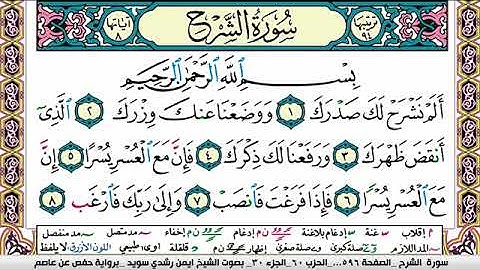 آياتها ٨ سُورَةُ الشَّرْحِ ترتيبها ٩٤
بِسْمِ ٱللَّهِ ٱلرَّحْمَٰنِ ٱلرَّحِيمِ
أَلَمْ نَشْرَحْ لَكَ صَدْرَكَ ١ وَوَضَعْنَا عَنكَ وِزْرَكَ ٢ ٱلَّذِىٓ
أَنقَضَ ظَهْرَكَ ٣ وَرَفَعْنَا لَكَ ذِكْرَكَ ٤ فَإِنَّ مَعَ ٱلْعُسْرِ يُسْرًا ٥ إِنَّ
مَعَ ٱلْعُسْرِ يُسْرًا ٦ فَإِذَا فَرَغْتَ فَٱنصَبْ ٧ وَإِلَىٰ رَبِّكَ فَٱرْغَب ٨
م إقلاب غنة إدغام بلاغنة إدغام إخفاء مد متصل مد منفصل
المد اللازم صلة كبرى وصلة صغرى إظهار قلقلة طبيعي اللون الأزرق لا يلفظ
سورة الشرح الصفحة ٥٩٦ الحزب ٦٠ الجزء ٣٠ بصوت الشيخ ايمن رشدي سويد برواية حفص عن عاصم